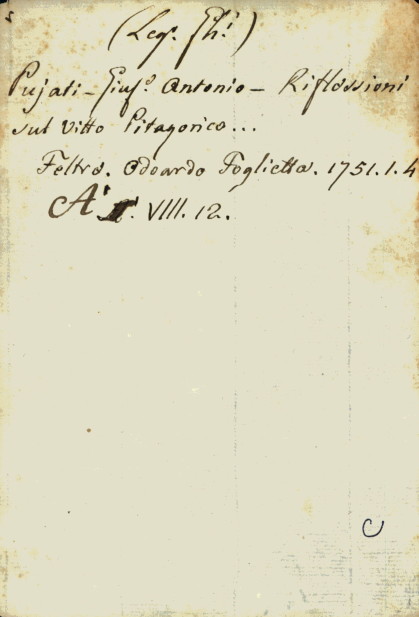 (Leg. Ghi)
Pujati - Giuse. Antonio - Riflessioni
sul Vitto Pitagorico...
Feltre. Odoardo Foglietta. 1751. 1. 4
A'. VIII. 12.
C